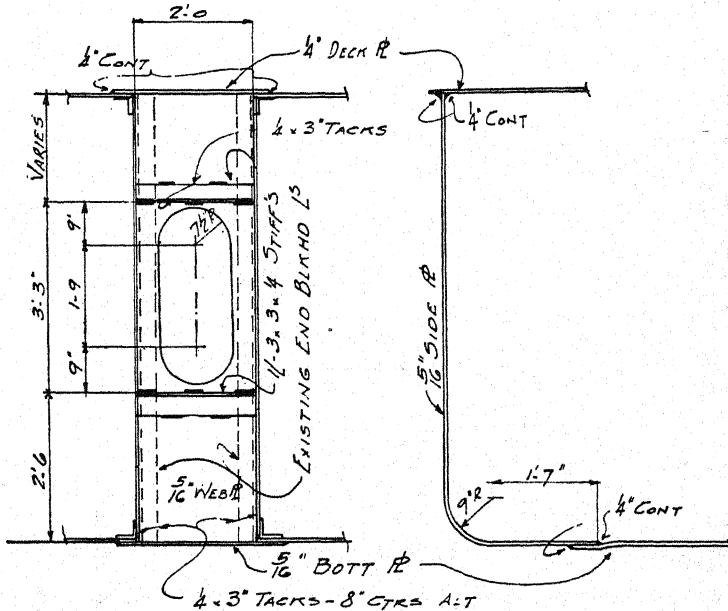 2'-0
1/4" CONT
1/4" DECK PL
1/4" CONT
1/4 x 3" TACKS
VARIES
9"
7 1/2" R
1-9
3'-3"
9"
1L-3x3x1/4 STIFF'S
EXISTING END BLKHD LS
5/16" SIDE PL
2'-6
5/16" WEB PL
1'-7"
9" R
1/4" CONT
5/16" BOTT PL
1/4 x 3" TACKS - 8" CTRS ALT